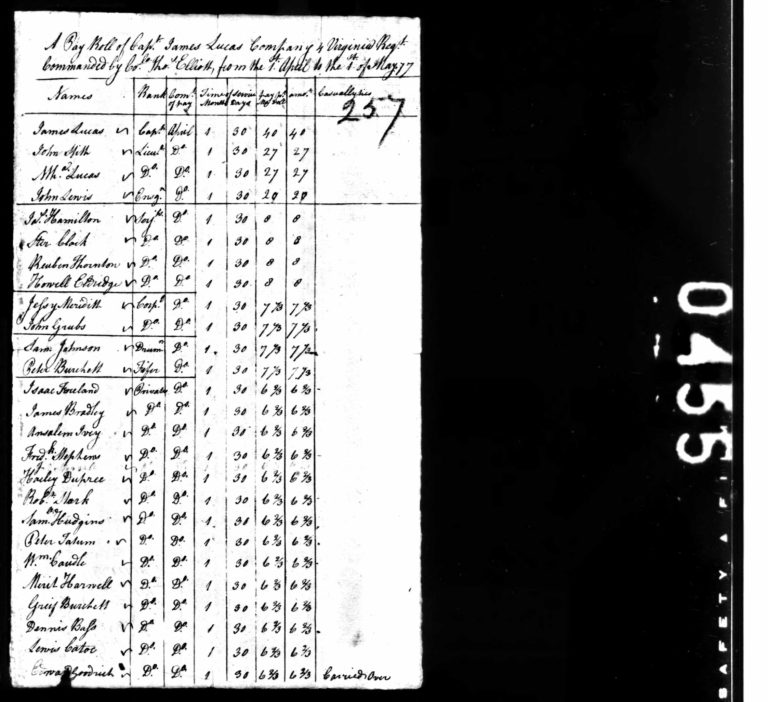 A Pay Roll of Capt James Lucas Company 4 Virginia Regt
Commanded by Col Thos Elliott, from the 1st April to the 1st of May 77
Names Rank Comt of pay Time of Service Months Days pay pr amot Casualties
257
James Lucas Capt April 1 30 40 40
John Lieut Do 1 30 27 27
Lucas Do Do 1 30 27 27
John Lewis Ensgn Do 1 30 20 20
Jas Hamilton Serjt Do 1 30 8 8
Clack Do Do 1 30 8 8
Reuben Thornton Do Do 1 30 8 8
Howell Eldridge Do Do 1 30 8 8
Jessy Meridith Corpl Do 1 30 7 1/3 7 1/3
John Grubs Do Do 1 30 7 1/3 7 1/3
Saml Johnson Drumr Do 1 30 7 1/3 7 1/3
Peter Burchett Fifer Do 1 30 7 1/3 7 1/3
Isaac Private Do 1 30 6 2/3 6 2/3
James Bradley Do Do 1 30 6 2/3 6 2/3
Ansalem Ivey Do Do 1 30 6 2/3 6 2/3
Fredk Stephens Do Do 1 30 6 2/3 6 2/3
Hailey Dupree Do Do 1 30 6 2/3 6 2/3
Robt Do Do 1 30 6 2/3 6 2/3
Saml Hudgins Do Do 1 30 6 2/3 6 2/3
Peter Tatum Do Do 1 30 6 2/3 6 2/3
Wm Caudle Do Do 1 30 6 2/3 6 2/3
Merit Harwell Do Do 1 30 6 2/3 6 2/3
Greif Burchett Do Do 1 30 6 2/3 6 2/3
Dennis Bass Do Do 1 30 6 2/3 6 2/3
Lewis Catoe Do Do 1 30 6 2/3 6 2/3
Goodrich Do Do 1 30 6 2/3 6 2/3 Carried Over
0455
SAFETY